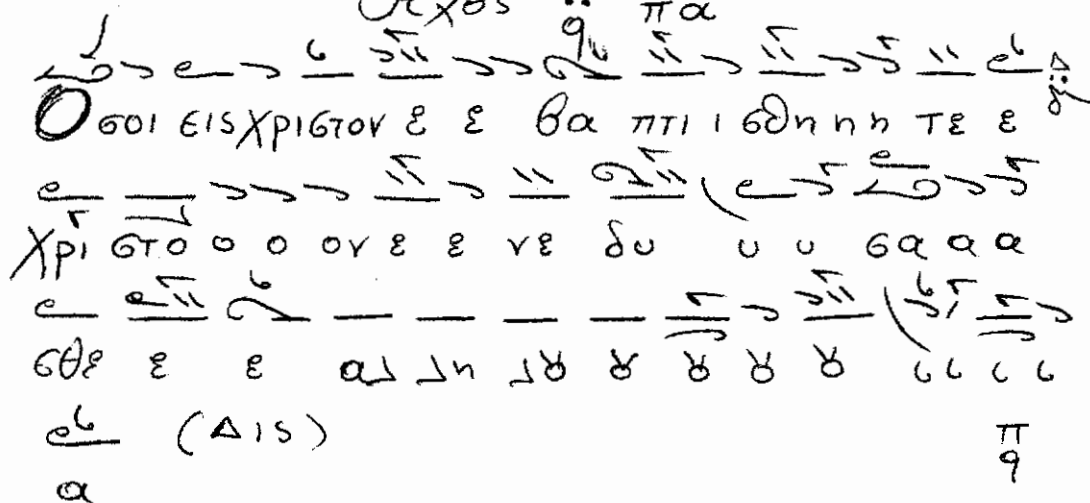 Ηχος πα
Οσοι εις Χριστον ε ε βα πτι ι σθη η η τε ε
Χρι στο ο ο ον ε ε νε δυ υ υ σα α α
σθε ε ε αλ λη λȣ ȣ ȣ ȣ ȣ ι ι ι ι
α (Δις)